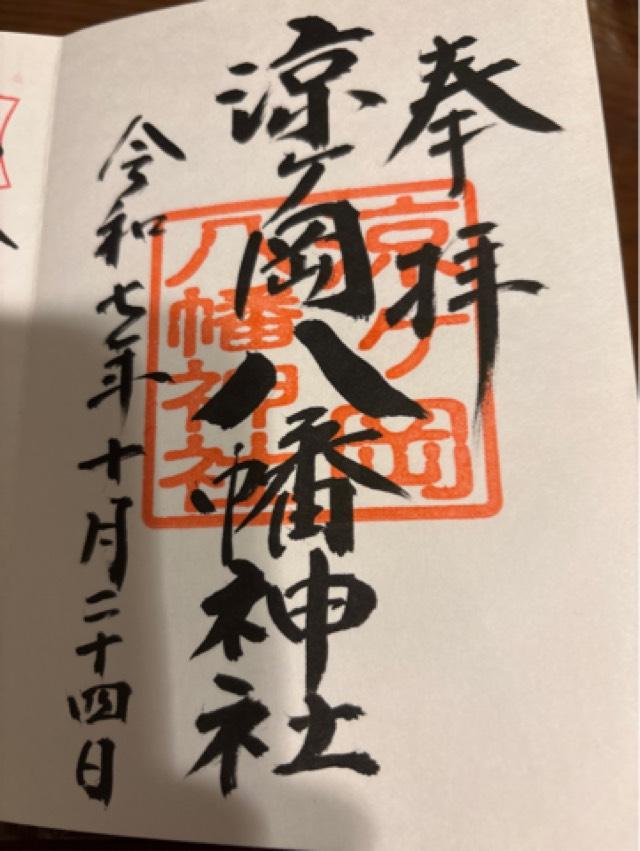 奉拝
涼ケ岡八幡神社
令和七年十月二十四日
京ケ岡
八幡神社